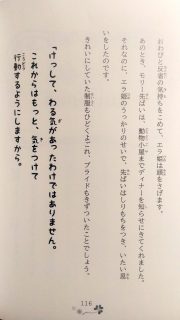 おわびと反省の気持ちをこめて、エラ姫は頭をさげます。
あのとき、モリー先ぱいは、動物小屋までディナーを知らせにきてくれました。
それなのに、エラ姫のうっかりのせいで、先ぱいはしりもちをつき、いたい思
いをしたのです。
きれいにしていた制服もひどくよごれ、プライドもきずついたことでしょう。
「けっして、わる気があったわけではありません。
これからはもっと、気をつけて
行動するようにしますから。
116